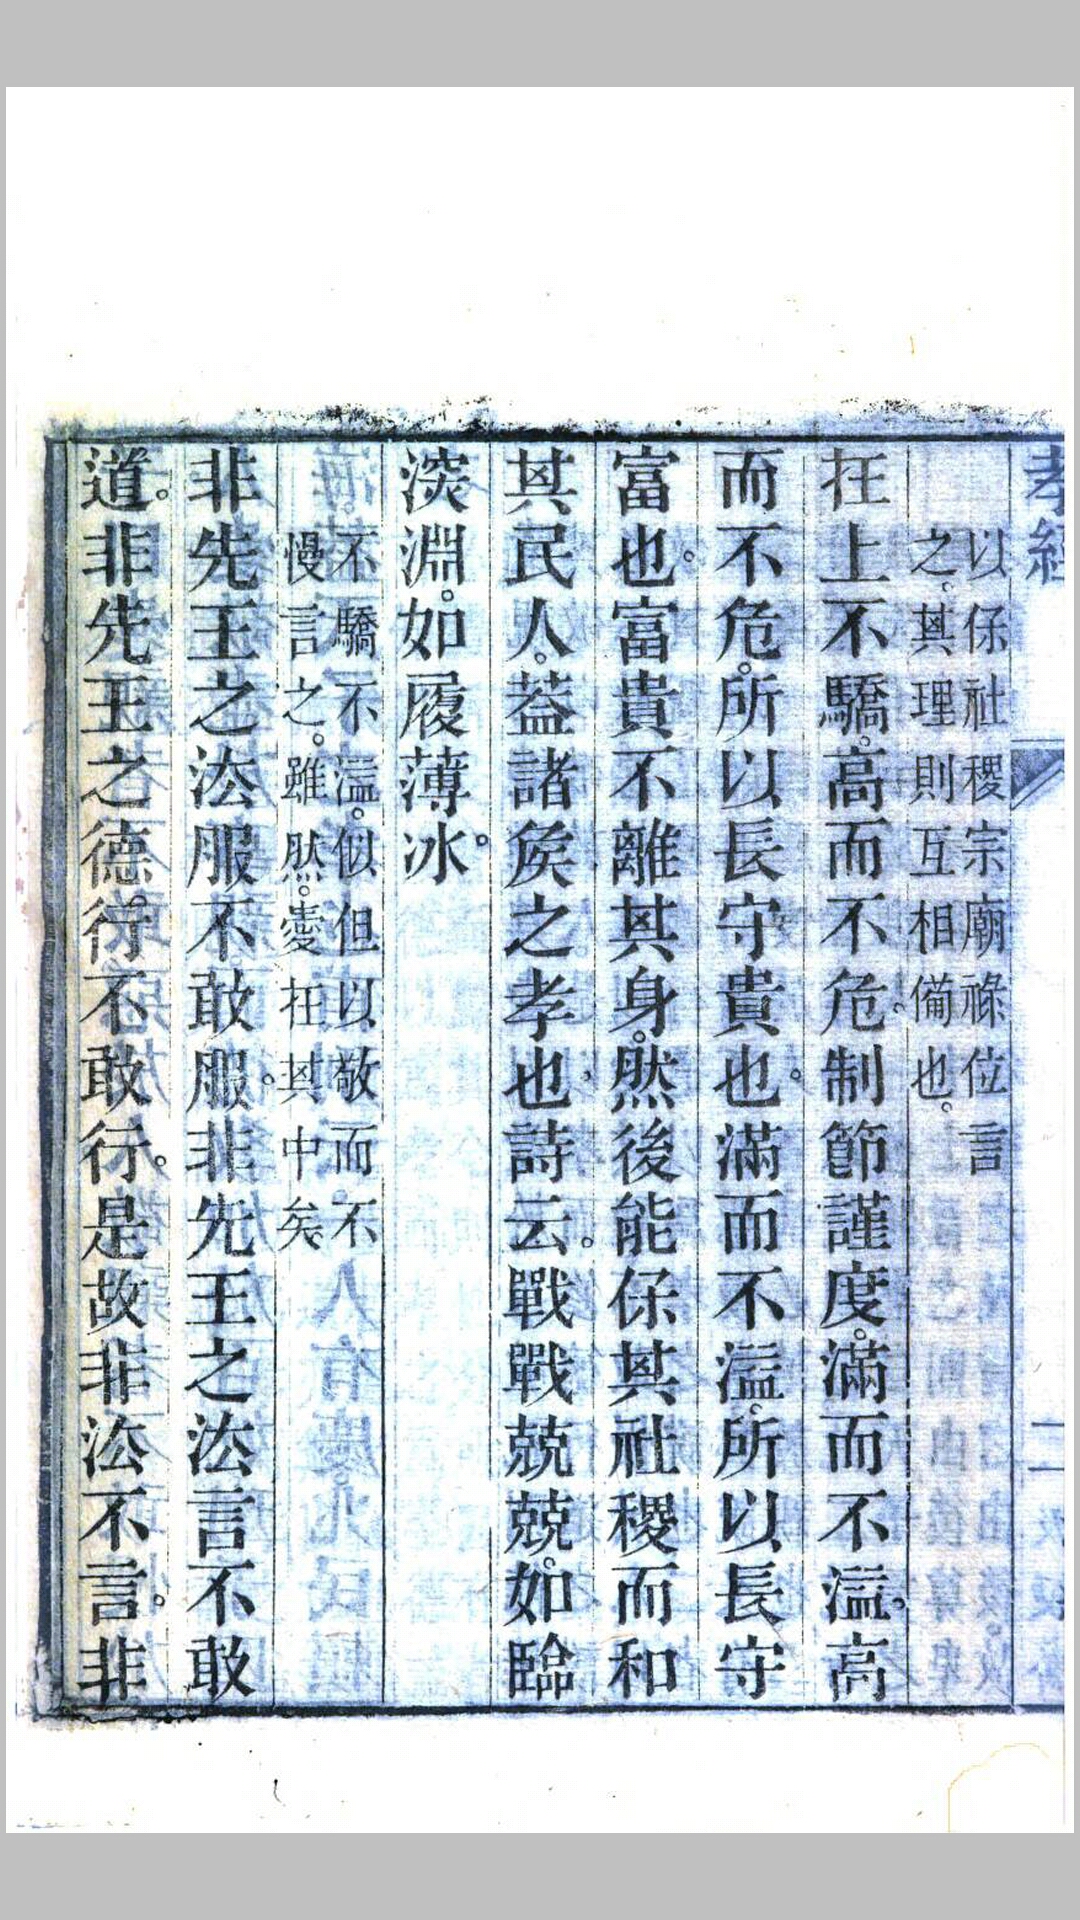 孝經
二
以保社稷宗廟祿位言
之。其理則互相備也。
在上不驕。高而不危。制節謹度。滿而不溢。高
而不危。所以長守貴也。滿而不溢。所以長守
富也。富貴不離其身。然後能保其社稷而和
其民人。蓋諸矦之孝也。詩云。戰戰兢兢。如臨
深淵。如履薄冰。
不驕不溢。似但以敬而不
慢言之。雖然。愛在其中矣。
非先王之法服不敢服。非先王之法言不敢
道。非先王之德行不敢行。是故非法不言。非